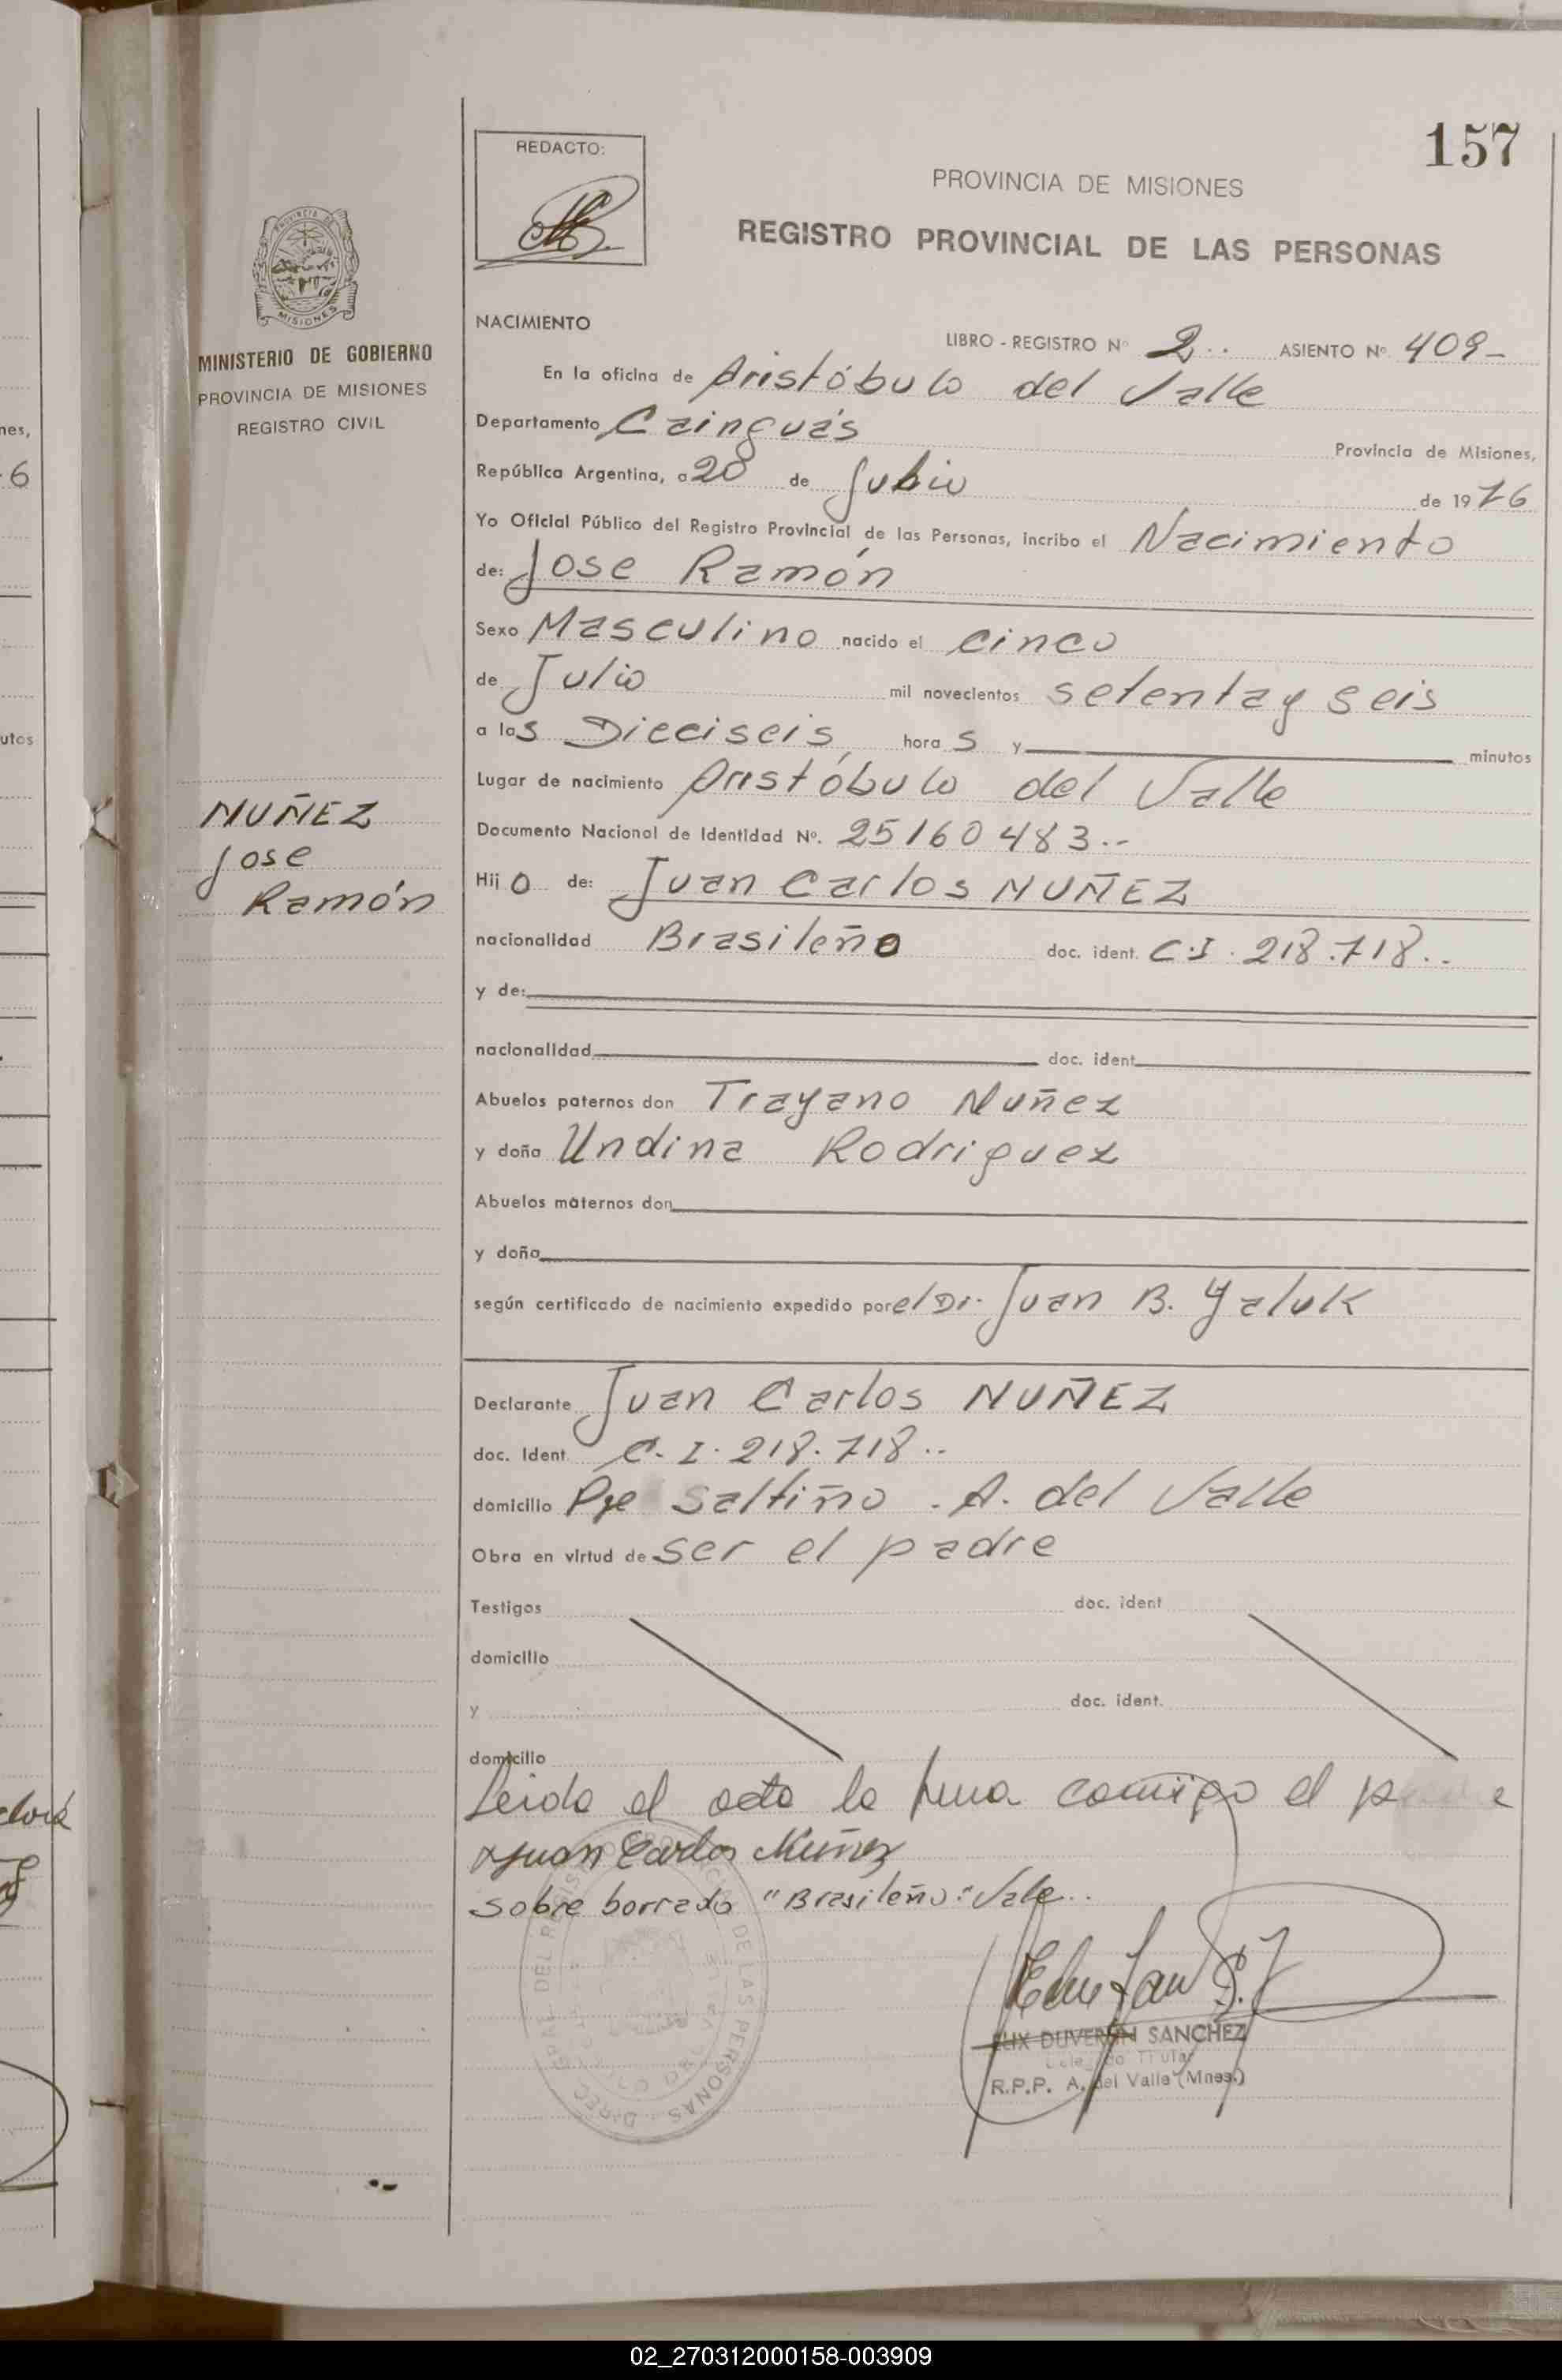 157
REDACTO:
PROVINCIA DE MISIONES
REGISTRO PROVINCIAL DE LAS PERSONAS
PROVINCIA DE
MISIONES
MINISTERIO DE GOBIERNO
PROVINCIA DE MISIONES
REGISTRO CIVIL
NUÑEZ
Jose
Ramón
NACIMIENTO
LIBRO - REGISTRO Nº 2.. ASIENTO Nº 409-
En la oficina de Aristóbulo del Valle
Departamento Cainguás Provincia de Misiones,
República Argentina, a 20 de Julio de 1976
Yo Oficial Público del Registro Provincial de las Personas, incribo el Nacimiento
de: Jose Ramón
Sexo Masculino nacido el cinco
de Julio mil novecientos setenta y seis
a las Dieciseis, horas y minutos
Lugar de nacimiento Aristóbulo del Valle
Documento Nacional de Identidad Nº. 25160483..-
Hijo de: Juan Carlos NUÑEZ
nacionalidad Brasileño doc. ident. C.I. 218.718..
y de:
nacionalidad doc. ident
Abuelos paternos don Trayano Nuñez
y doña Undina Rodriguez
Abuelos maternos don
y doña
según certificado de nacimiento expedido por el Dr. Juan B. Yaluk
Declarante Juan Carlos NUÑEZ
doc. Ident C. I. 218.718..
domicilio Pje Saltiño . A. del Valle
Obra en virtud de ser el padre
Testigos doc. ident
domicilio
y doc. ident.
domicilio
Leida el acta la firma comigo el
Juan Carlos Nuñez
sobre borrado "Brasileño": Vale..
DUVERAN SANCHEZ
Titular
R.P.P. A. del Valle (Mnes.)
DEL DE LAS PERSONAS
6
nes,
utos
02_270312000158-003909